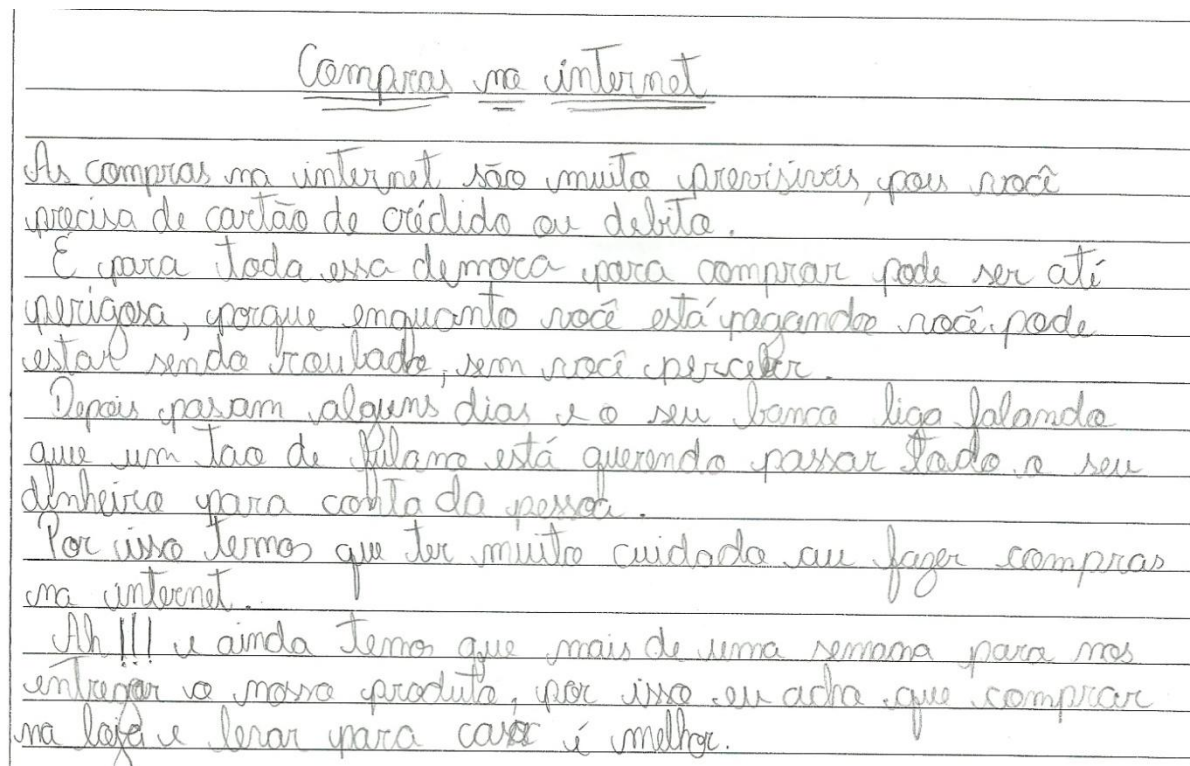 Compras na internet
As compras na internet são muito previsiveis, pois você
precisa de cartão de crédido ou debito.
E para toda essa demora para comprar pode ser até
perigosa, porque enquanto você está pagando você pode
estar sendo roubado, sem você perceber.
Depois pasam alguns dias e o seu banco liga falando
que um tao de fulano está querendo passar todo o seu
dinheiro para conta da pessoa.
Por isso temos que ter muito cuidado au fazer compras
na internet.
Ah!!! e ainda temos que mais de uma semana para nos
entregar o nosso produto, por isso eu acho que comprar
na loja e levar para casa é melhor.